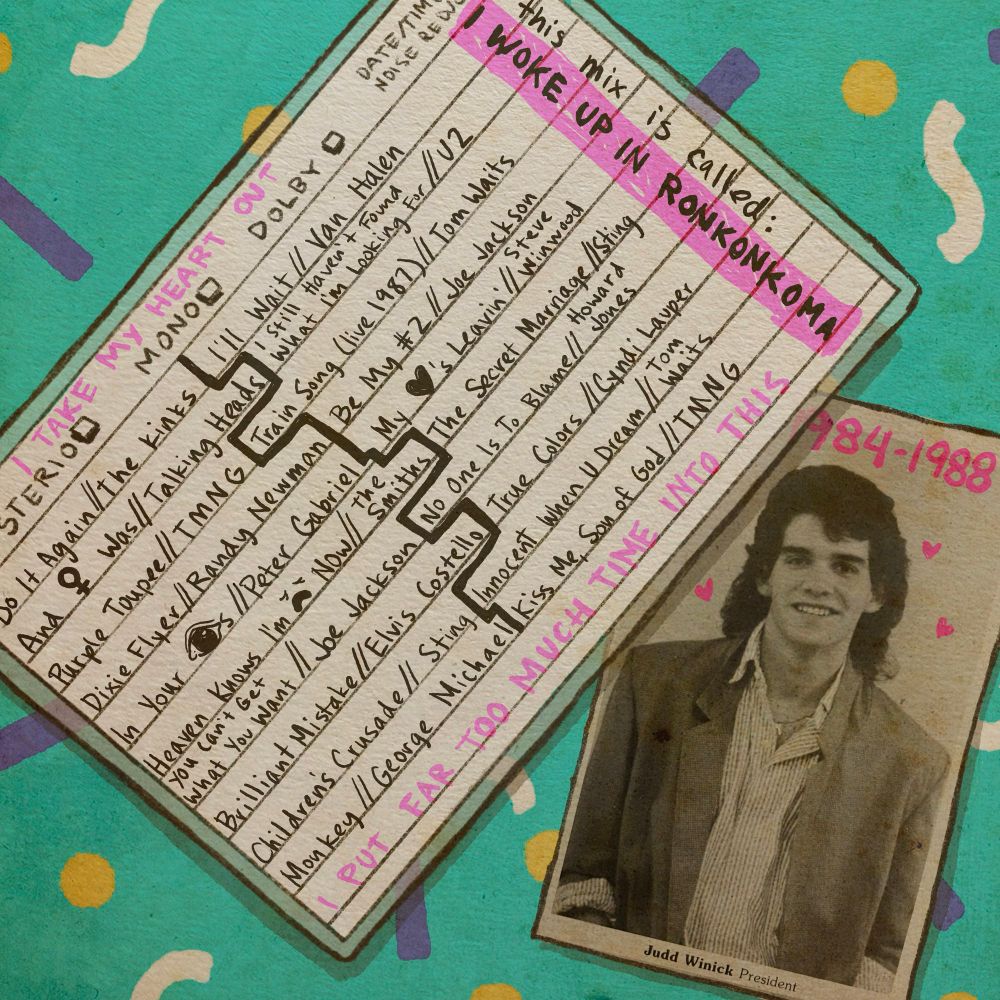 this mix is called:
I WOKE UP IN RONKONKOMA
DATE/TIME
NOISE
I TAKE MY HEART OUT
STERIO MONO DOLBY
Do It Again // The Kinks
And ♀ Was // Talking Heads
Purple Toupee // TMNG
Dixie Flyer // Randy Newman
In Your 👁s // Peter Gabriel
Heaven Knows I'm ☹ Now // The Smiths
You Can't Get
What You Want // Joe Jackson
Brilliant Mistake // Elvis Costello
Children's Crusade // Sting
Monkey // George Michael
I'll Wait // Van Halen
I Still Haven't Found
What I'm Looking For // U2
Train Song (live 1987) // Tom Waits
Be My #2 // Joe Jackson
My ♥'s Leavin' // Steve Winwood
The Secret Marriage // Sting
No One Is To Blame // Howard Jones
True Colors // Cyndi Lauper
Innocent When U Dream // Tom Waits
Kiss Me, Son of God // TMNG
I PUT FAR TOO MUCH TIME INTO THIS
1984-1988
Judd Winick President